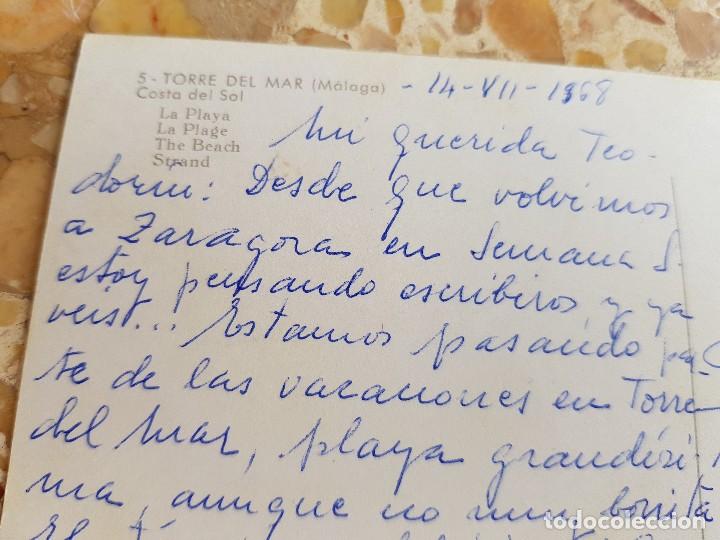 5 - TORRE DEL MAR (Málaga) - 14-VII-1968
Costa del Sol
La Playa
La Plage
The Beach
Strand
Mi querida Teo-
dorin: Desde que volvimos
a Zaragoza en Semana S.
estoy pensando escribiros y ya
veis... Estamos pasando par
te de las vacaciones en Torre
del Mar, playa grandísi
ma, aunque no muy bonita
todocoleccion
todocoleccion.net